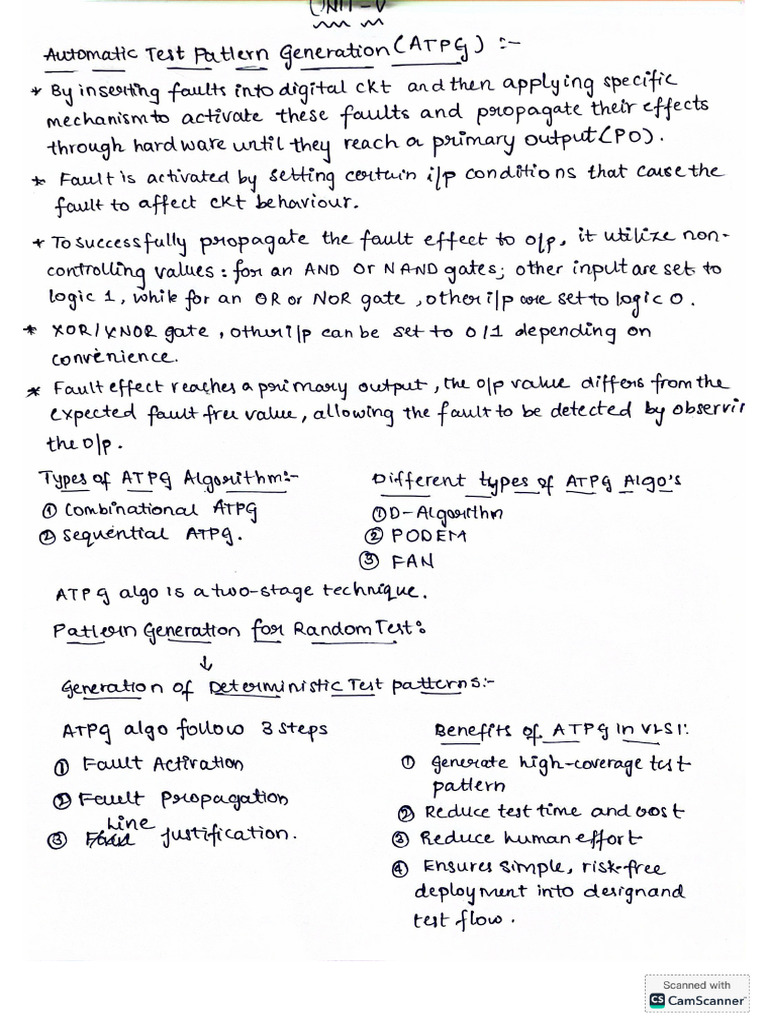 UNIT-V
Automatic Test Pattern Generation (ATPG) :-
* By inserting faults into digital ckt and then applying specific
mechanism to activate these faults and propagate their effects
through hardware until they reach a primary output (PO).
* Fault is activated by setting certain i/p conditions that cause the
fault to affect ckt behaviour.
* To successfully propagate the fault effect to o/p, it utilize non-
controlling values: for an AND or NAND gates; other input are set to
logic 1, while for an OR or NOR gate, other i/p are set to logic 0.
* XOR/XNOR gate, other i/p can be set to 0/1 depending on
convenience.
* Fault effect reaches a primary output, the o/p value differs from the
expected fault free value, allowing the fault to be detected by observi
the o/p.
Types of ATPG Algorithm:-
① Combinational ATPG
② Sequential ATPG.
Different types of ATPG Algo's
① D-Algorithm
② PODEM
③ FAN
ATPG algo is a two-stage technique.
Pattern Generation for Random Test:
↓
Generation of Deterministic Test patterns:-
ATPG algo follow 3 steps
① Fault Activation
② Fault Propagation
③ Line Justification.
Benefits of ATPG in VLSI:
① Generate high-coverage test
pattern
② Reduce test time and cost
③ Reduce human effort
④ Ensures simple, risk-free
deployment into design and
test flow.
Scanned with
CS CamScanner